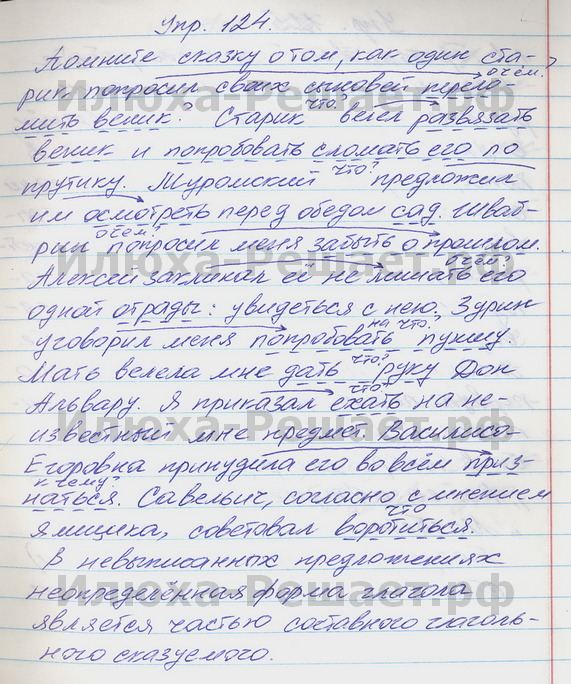 Упр. 124.
Помните сказку о том, как один ста-
о чём?
рик попросил своих сыновей перело-
что?
мить веник? Старик велел развязать
веник и попробовать сломать его по
что?
прутику. Муромский предложил
им осмотреть перед обедом сад. Шваб-
о чём?
рин попросил меня забыть о прошлом.
о чём?
Алексей заклинал её не лишать его
одной отрады: увидеться с нею. Зурин
на что?
уговорил меня попробовать пуншу.
что?
Мать велела мне дать руку Дон
что?
Альвару. Я приказал ехать на не-
известный мне предмет. Василиса
Егоровна принудила его во всём приз-
к чему?
наться. Савельич, согласно с мнением
что
ямщика, советовал воротиться.
В невыписанных предложениях
неопределённая форма глагола
является частью составного глаголь-
ного сказуемого.
Илюха-Решает.рф
Илюха-Решает.рф
Илюха-Решает.рф
Илюха-Решает.рф